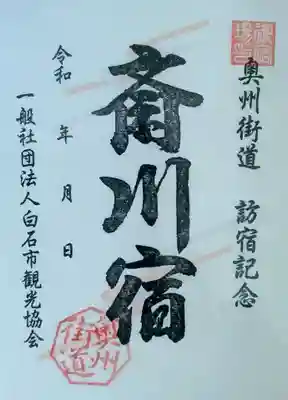 奥州街道 訪宿記念
斎川宿
令和 年 月 日
一般社団法人白石市観光協会
奥州
街道